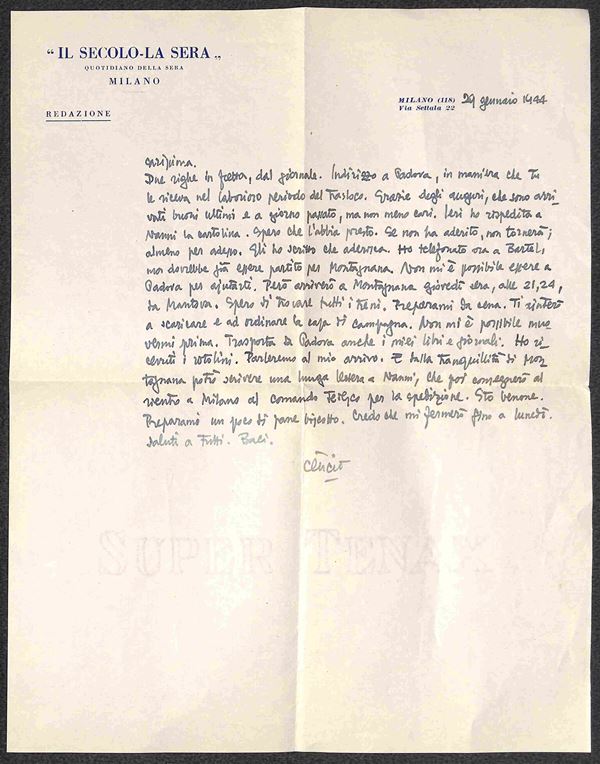 “ IL SECOLO-LA SERA „
QUOTIDIANO DELLA SERA
MILANO
REDAZIONE
MILANO (118)
Via Settala 22
29 gennaio 1944
Due righe in fretta, dal giornale. Indirizzo a Padova, in maniera che tu
le riceva nel laborioso periodo del trasloco. Grazie degli auguri, che sono arri-
vati buoni ultimi e a giorno passato, ma non meno cari. Ieri ho rispedita a
Nanni la cartolina. Spero che l'abbia presto. Se non ha aderito, non tornerà;
almeno per adesso. Gli ho scritto che aderisca. Ho telefonato ora a Bartel,
ma dovrebbe già essere partito per Montagnana. Non mi è possibile essere a
Padova per aiutarti. Però arriverò a Montagnana giovedì sera, alle 21,24,
da Mantova. Spero di trovare tutti i treni. Preparami da cena. Ti aiuterò
a scaricare e ad ordinare la casa di campagna. Non mi è possibile muo-
vermi prima. Trasporta da Padova anche i miei libri e giornali. Ho ri-
cevuti i rotolini. Parleremo al mio arrivo. E dalla tranquillità di Mon-
tagnana potrò scrivere una lunga lettera a Nanni, che poi consegnerò al
rientro a Milano al comando tedesco per la spedizione. Sto benone.
Preparami un poco di pane biscotto. Credo che mi fermerò fino a lunedì.
Saluti a tutti. Baci.
SUPER TENAX